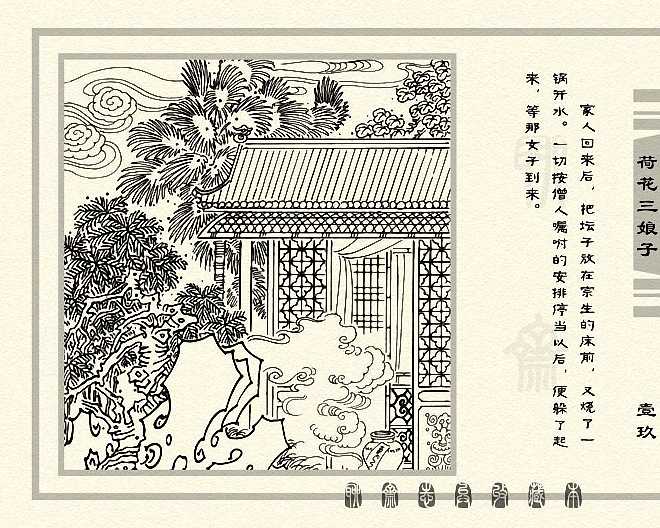 家人回来后，把坛子放在宗生的床前，又烧了一
锅开水。一切按僧人嘱咐的安排停当以后，便躲了起
来，等那女子到来。
荷花三娘子
壹玖